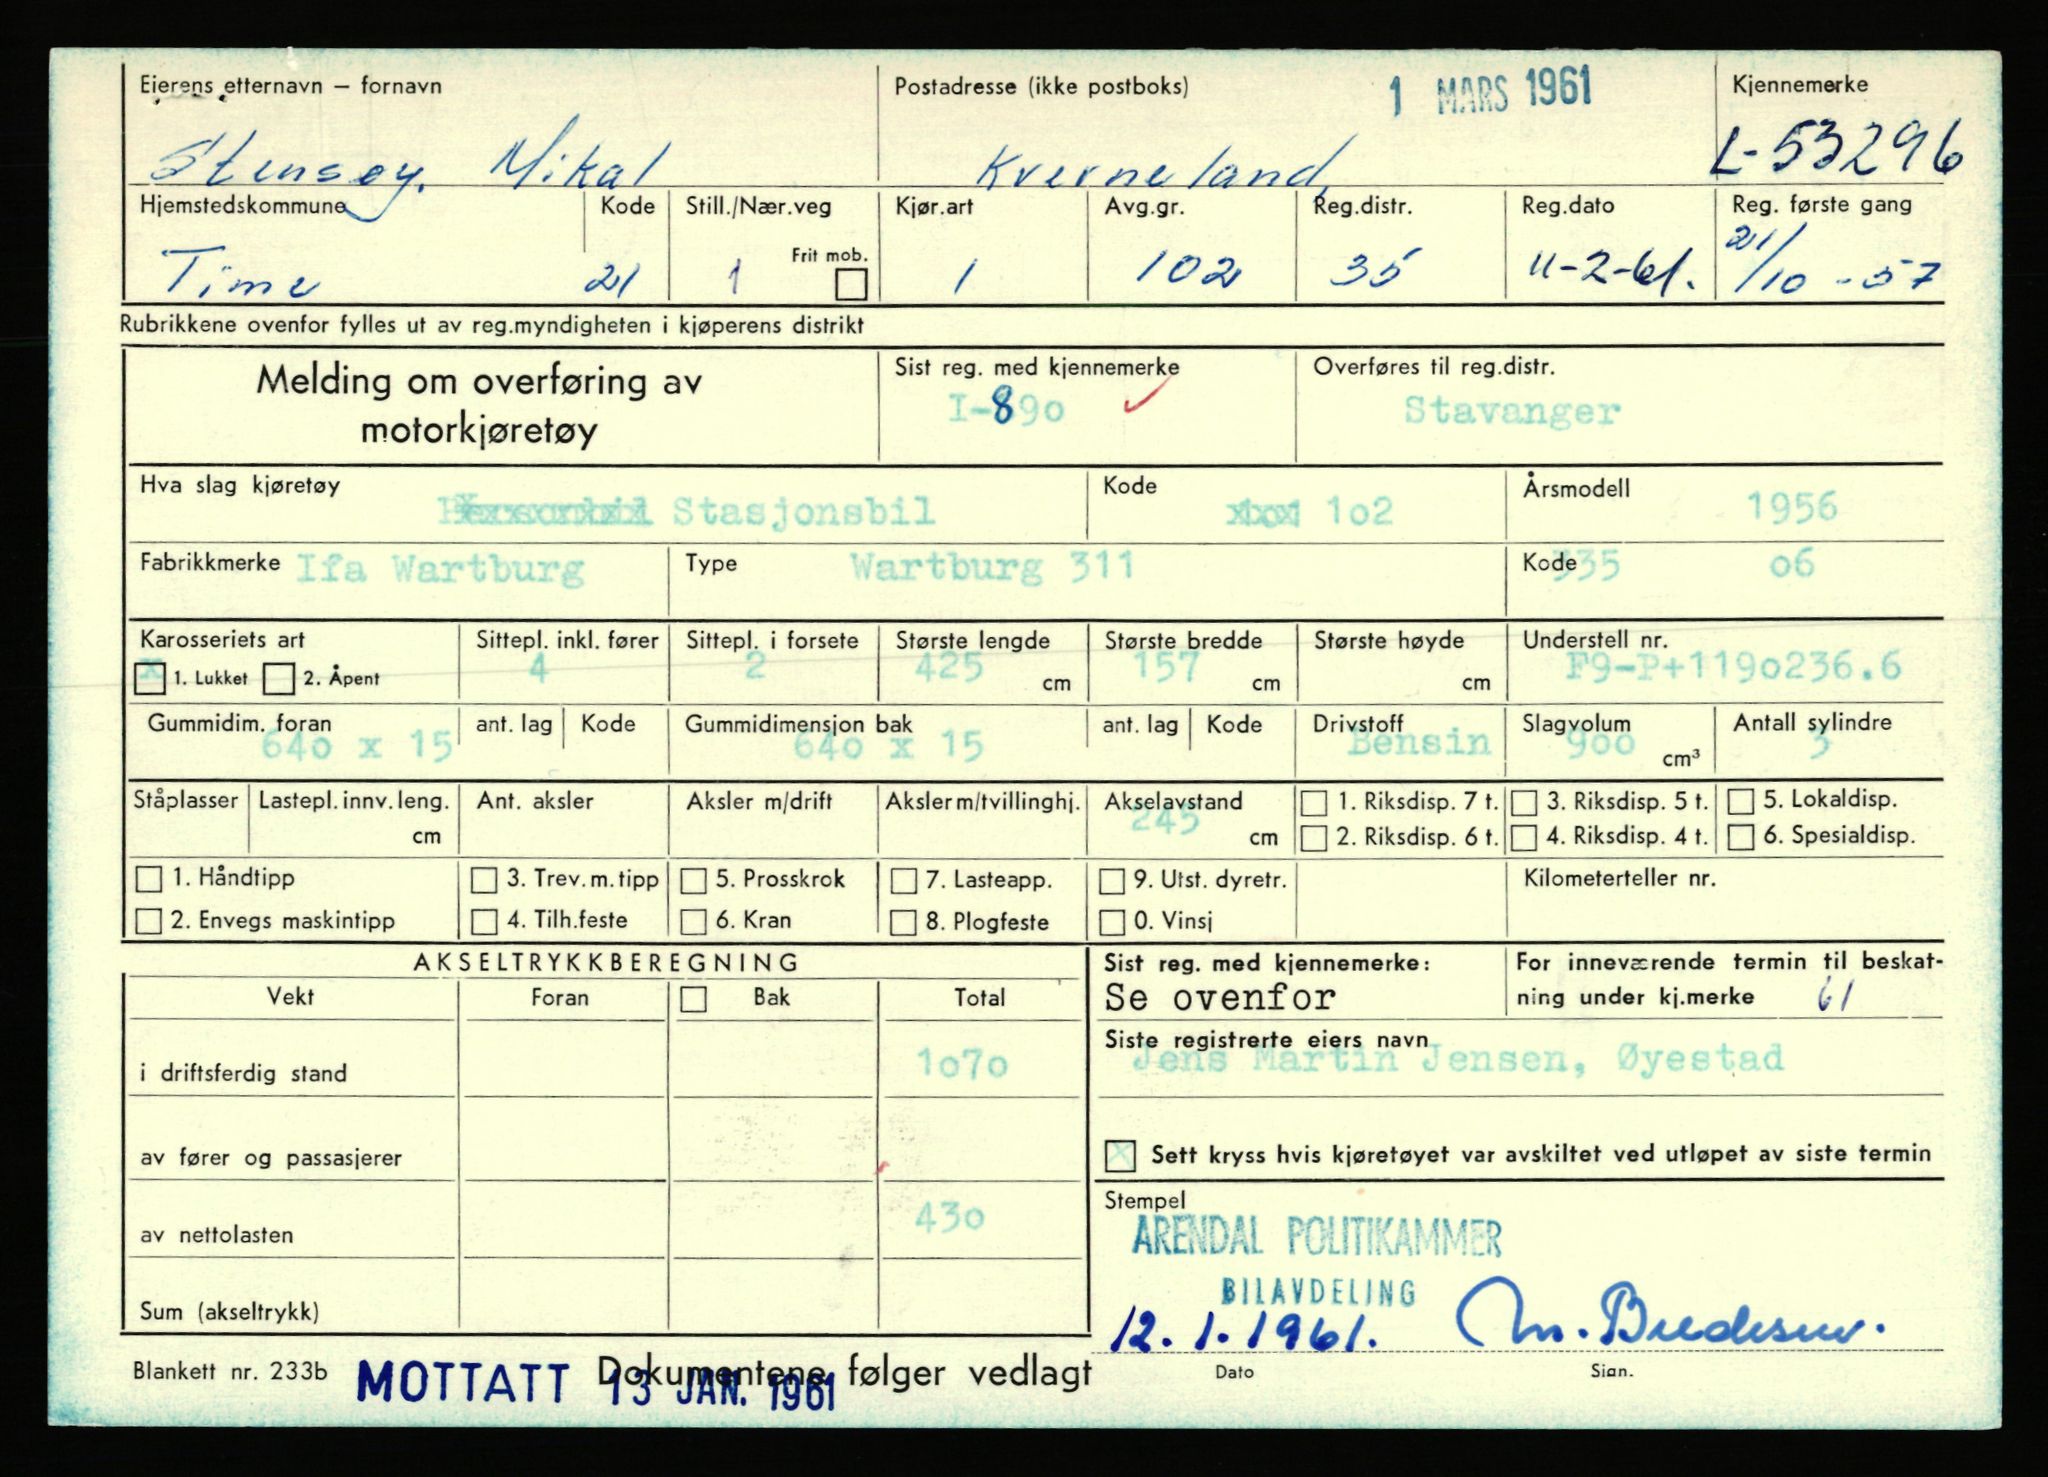 Eierens etternavn – fornavn Postadresse (ikke postboks) 1 MARS 1961 Kjennemerke
Stensøy, Mikal Kverneland, L-53296
Hjemstedskommune Kode Still./Nær.veg Kjør.art Avg.gr. Reg.distr. Reg.dato Reg. første gang
Frit mob.
Time 21 1 1 102 35 11-2-61. 21/10 -57
Rubrikkene ovenfor fylles ut av reg.myndigheten i kjøperens distrikt
Melding om overføring av Sist reg. med kjennemerke Overføres til reg.distr.
motorkjøretøy I-890 Stavanger
Hva slag kjøretøy Stasjonsbil Kode 102 Årsmodell 1956
Fabrikkmerke Ifa Wartburg Type Wartburg 311 Kode 335 06
Karosseriets art Sittepl. inkl. fører Sittepl. i forsete Største lengde Største bredde Største høyde Understell nr.
x 1. Lukket 2. Åpent 4 2 425 cm 157 cm cm F9-P+1190236.6
Gummidim. foran ant. lag Kode Gummidimensjon bak ant. lag Kode Drivstoff Slagvolum Antall sylindre
640 x 15 640 x 15 Bensin 900 cm³ 3
Ståplasser Lastepl. innv. leng. Ant. aksler Aksler m/drift Aksler m/tvillinghj. Akselavstand 1. Riksdisp. 7 t. 3. Riksdisp. 5 t. 5. Lokaldisp.
cm 245 cm 2. Riksdisp. 6 t. 4. Riksdisp. 4 t. 6. Spesialdisp.
1. Håndtipp 3. Trev. m. tipp 5. Prosskrok 7. Lasteapp. 9. Utst. dyretr. Kilometerteller nr.
2. Envegs maskintipp 4. Tilh.feste 6. Kran 8. Plogfeste 0. Vinsj
AKSELTRYKKBEREGNING Sist reg. med kjennemerke: For inneværende termin til beskat-
Vekt Foran Bak Total Se ovenfor ning under kj.merke 61
Siste registrerte eiers navn
i driftsferdig stand 1070 Jens Martin Jensen, Øyestad
av fører og passasjerer x Sett kryss hvis kjøretøyet var avskiltet ved utløpet av siste termin
Stempel
av nettolasten 430 ARENDAL POLITIKAMMER
BILAVDELING
Sum (akseltrykk) 12.1.1961. M. Bredesen.
Blankett nr. 233b Dokumentene følger vedlagt Dato Sign.
MOTTATT 13 JAN. 1961